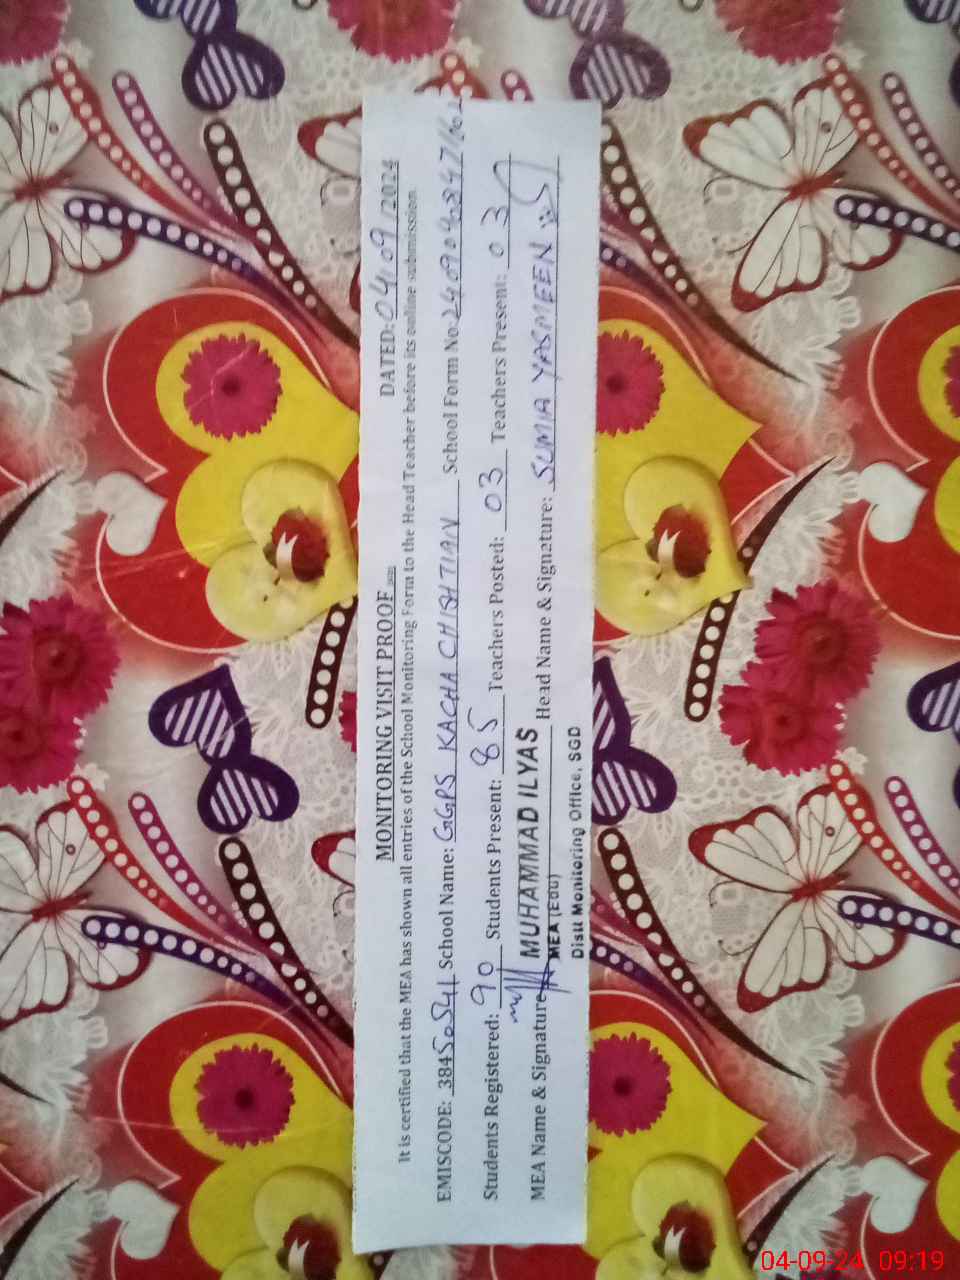 MONITORING VISIT PROOF DATED: 04/09/2024
It is certified that the MEA has shown all entries of the School Monitoring Form to the Head Teacher before its online submission
EMISCODE: 38450541 School Name: GGPS KACHA CHISHTIAN School Form No:
Students Registered: 90 Students Present: 85 Teachers Posted: 03 Teachers Present: 03
MEA Name & Signature MUHAMMAD ILYAS Head Name & Signature: SUMIA YASMEEN
MEA (Edu)
Distt Monitoring Office, SGD
04-09-24 09:19